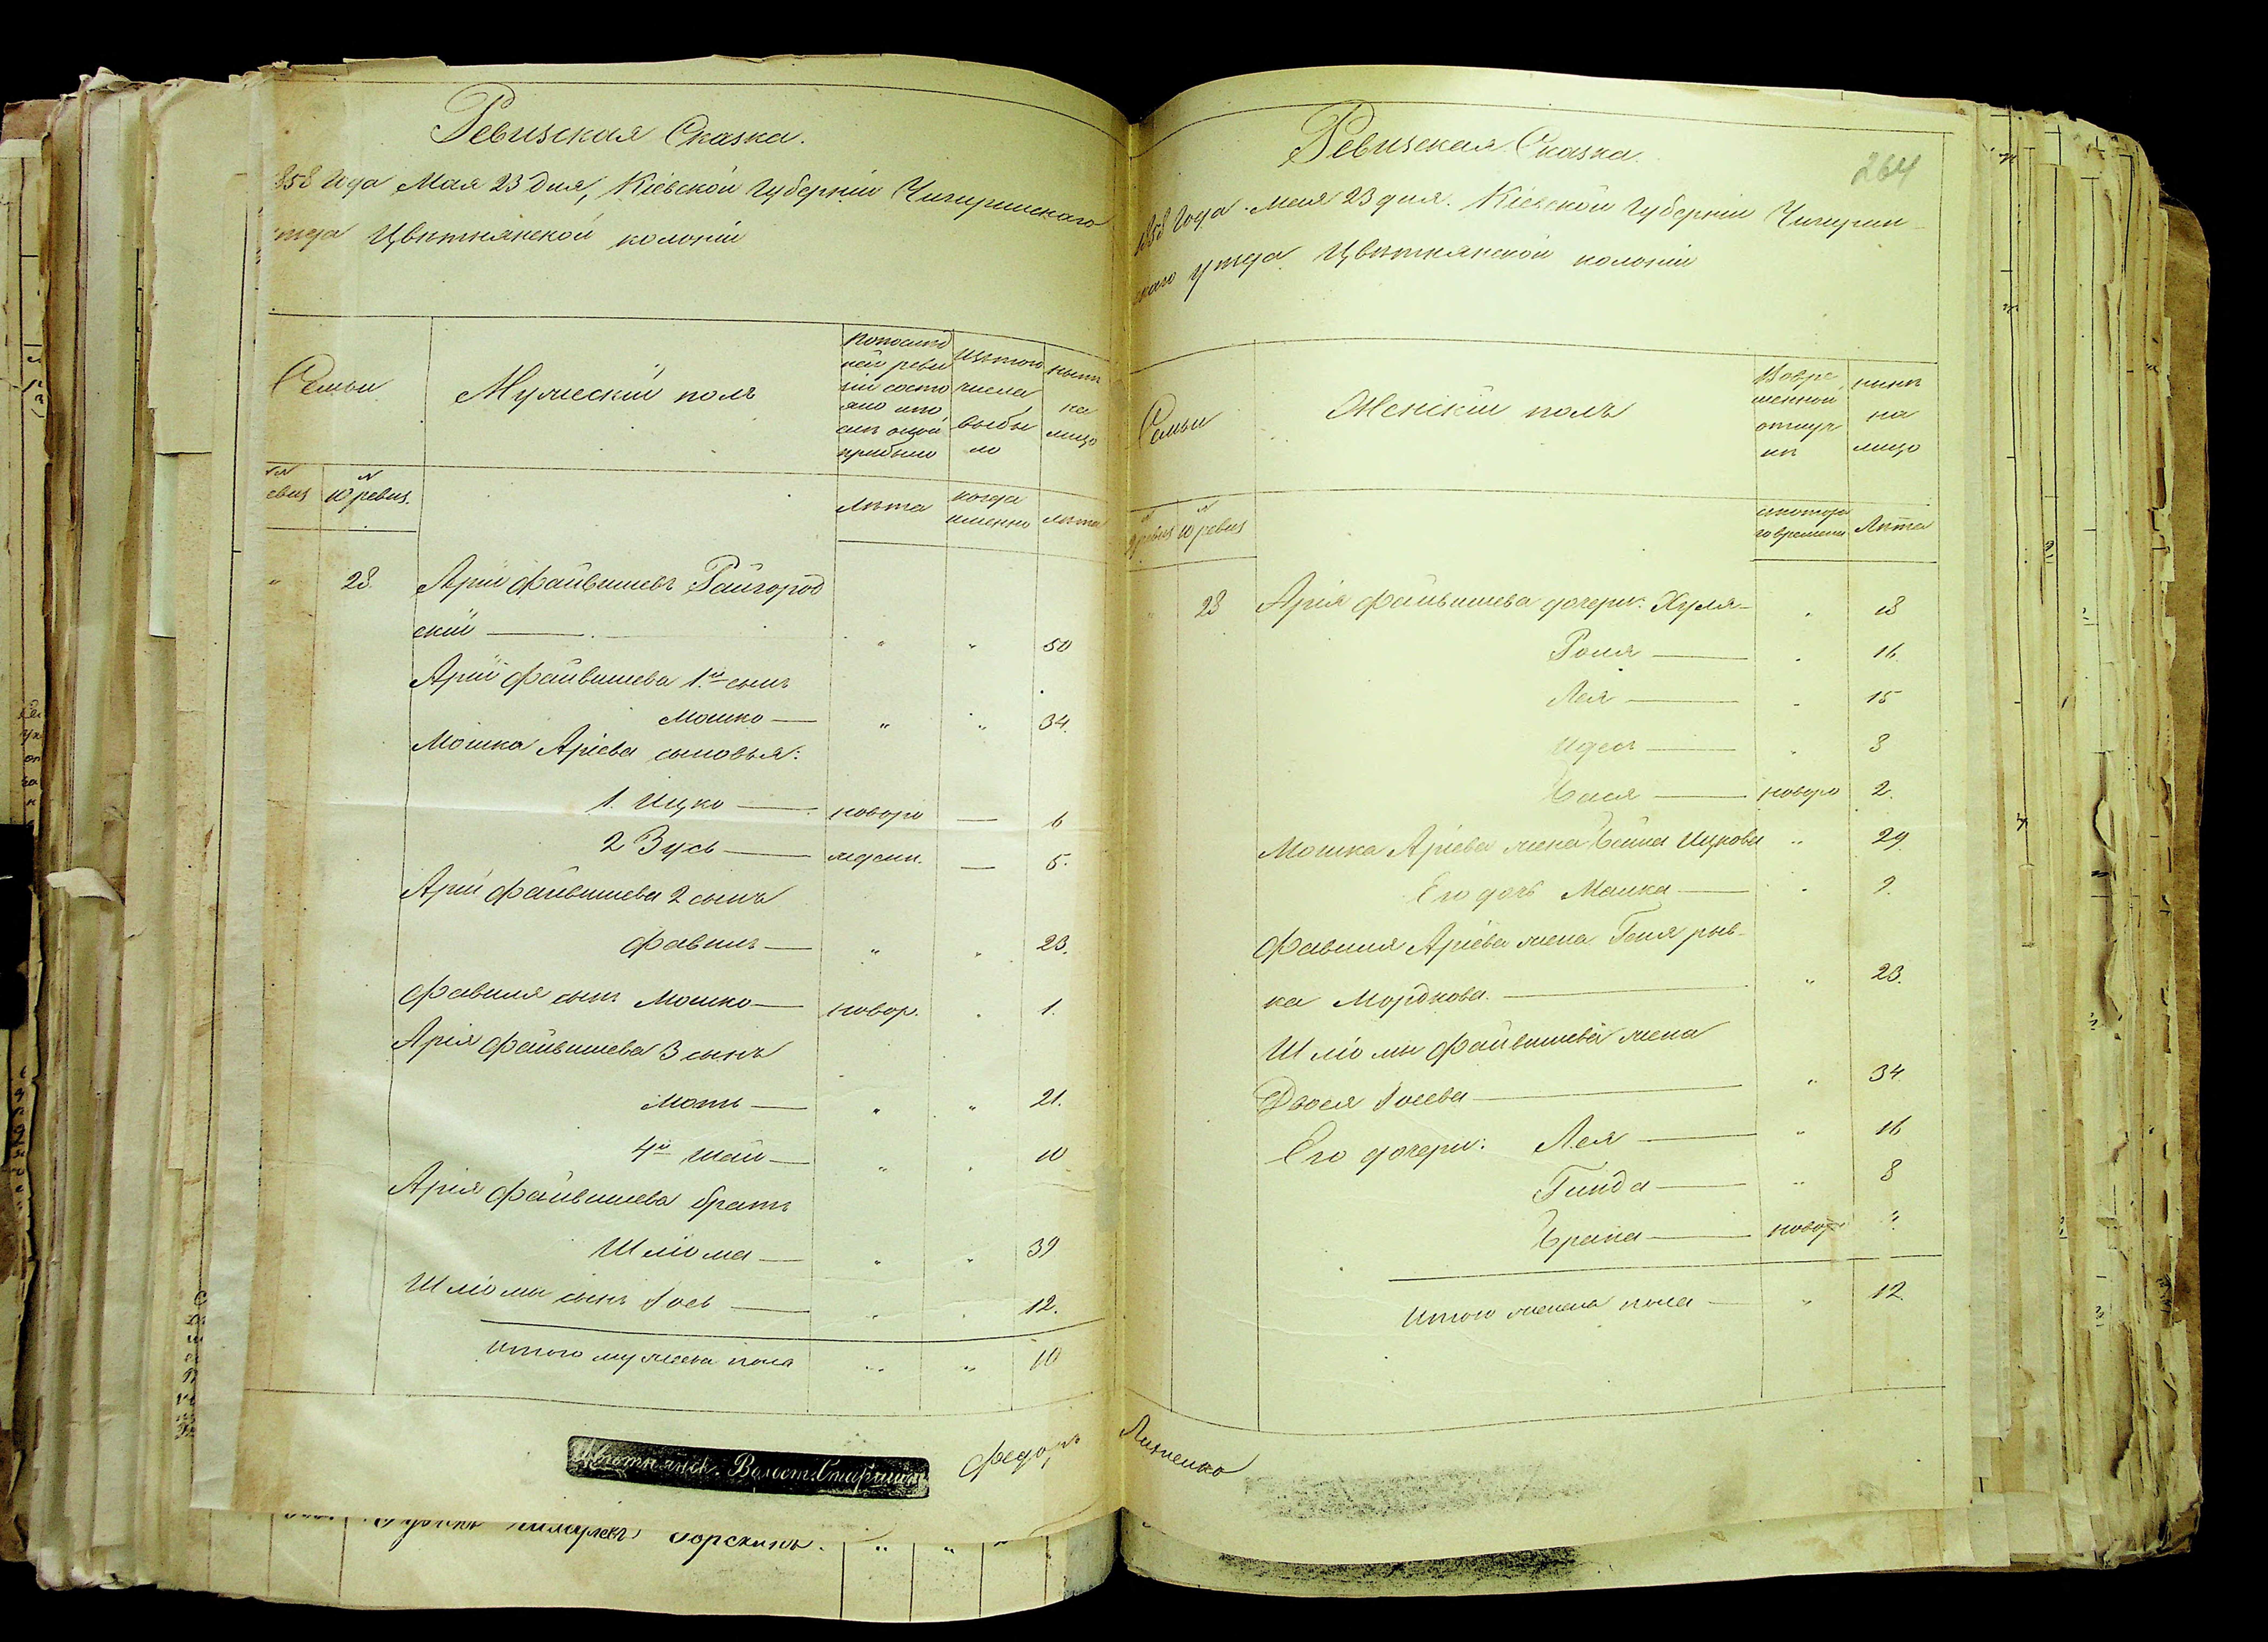 Ревизская Сказка.
858 года Мая 23 дня, Кіевской Губерніи Чигиринскаго
Цвѣтнянской колоніи
Семьи
Мужескій полъ
изъ того числа выбы ло
нынѣ на лицо
10 ревиз.
Лѣта
когда именно
лѣта
28 Арій Файвишевъ Райгород
скій — " " 50
Арій Файвишева 1й сынъ
Мошко — " " 34.
Мошка Аріева сыновья:
1. Ицко — новоро — 6
2 Зусь — — 5.
Арій Файвишева 2 сынъ
Фавишъ — " " 23.
Фавиша сынъ Мошко — новор. " 1.
Арія Файвишева 3 сынъ
Моть — " " 21.
4й Шай — " " 10
Арія Файвишева братъ
Шліома — " " 39
Шліомы сынъ Іось — " " 12.
Итого мужеска пола " " 10
Цвѣтнянск. Волост. Старшин
Федоръ
Ревизская Сказка.
264
1858 Года Мая 23 дня. Кіевской Губерніи Чигирин
скаго уѣзда Цвѣтнянской колоніи
Семьи
Женскій полъ
Вовре менной отлуч кѣ
нынѣ на лицо
9 ревиз 10 ревиз
съ котора го времени
Лѣта
28 Арія Файвишева дочери: Хуля — " 18
Роня — " 16.
Лея — " 15
Идес — " 8
Бася — новоро 2.
Мошка Аріева жена Бейла Ицкова " 29.
Его дочь Малка — " 9.
Фавиша Аріева жена Геня рыв-
ка Мордкова. — " 23.
Шліомы Файвишева жена
Двося Іосева — " 34
Его дочери: Лея — " 16
Гинда — " 8
Храна — новор "
Итого женска пола — " 12.